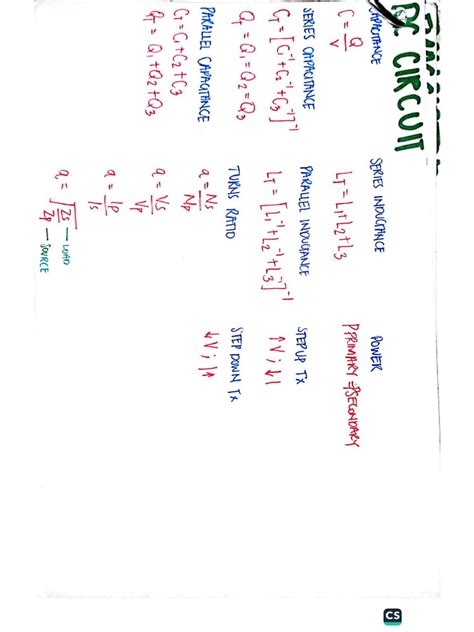 DC CIRCUIT
CAPACITANCE
C = Q/V
SERIES CAPACITANCE
CT = [C1⁻¹ + C2⁻¹ + C3⁻¹]⁻¹
QT = Q1 = Q2 = Q3
PARALLEL CAPACITANCE
CT = C1 + C2 + C3
QT = Q1 + Q2 + Q3
SERIES INDUCTANCE
LT = L1 + L2 + L3
PARALLEL INDUCTANCE
LT = [L1⁻¹ + L2⁻¹ + L3⁻¹]⁻¹
TURNS RATIO
a = Ns/Np
a = Vs/Vp
a = Ip/Is
a = √(Zs/Zp) — LOAD — SOURCE
POWER
PPRIMARY = PSECONDARY
STEP UP Tx
↑V ; ↓I
STEP DOWN Tx
↓V ; I↑
CS